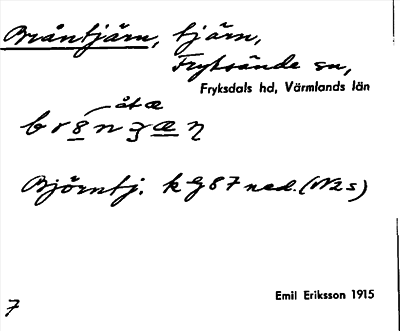 Bråntjärn, tjärn,
Fryksände sn,
Fryksdals hd, Värmlands län
åt æ
Björntj. k G 87 ned. (N2s)
Emil Eriksson 1915
7